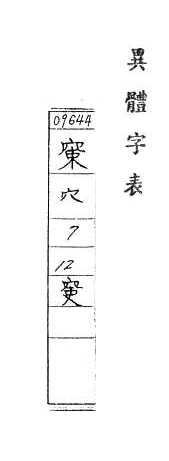 異體字表
09644
穴
7
12